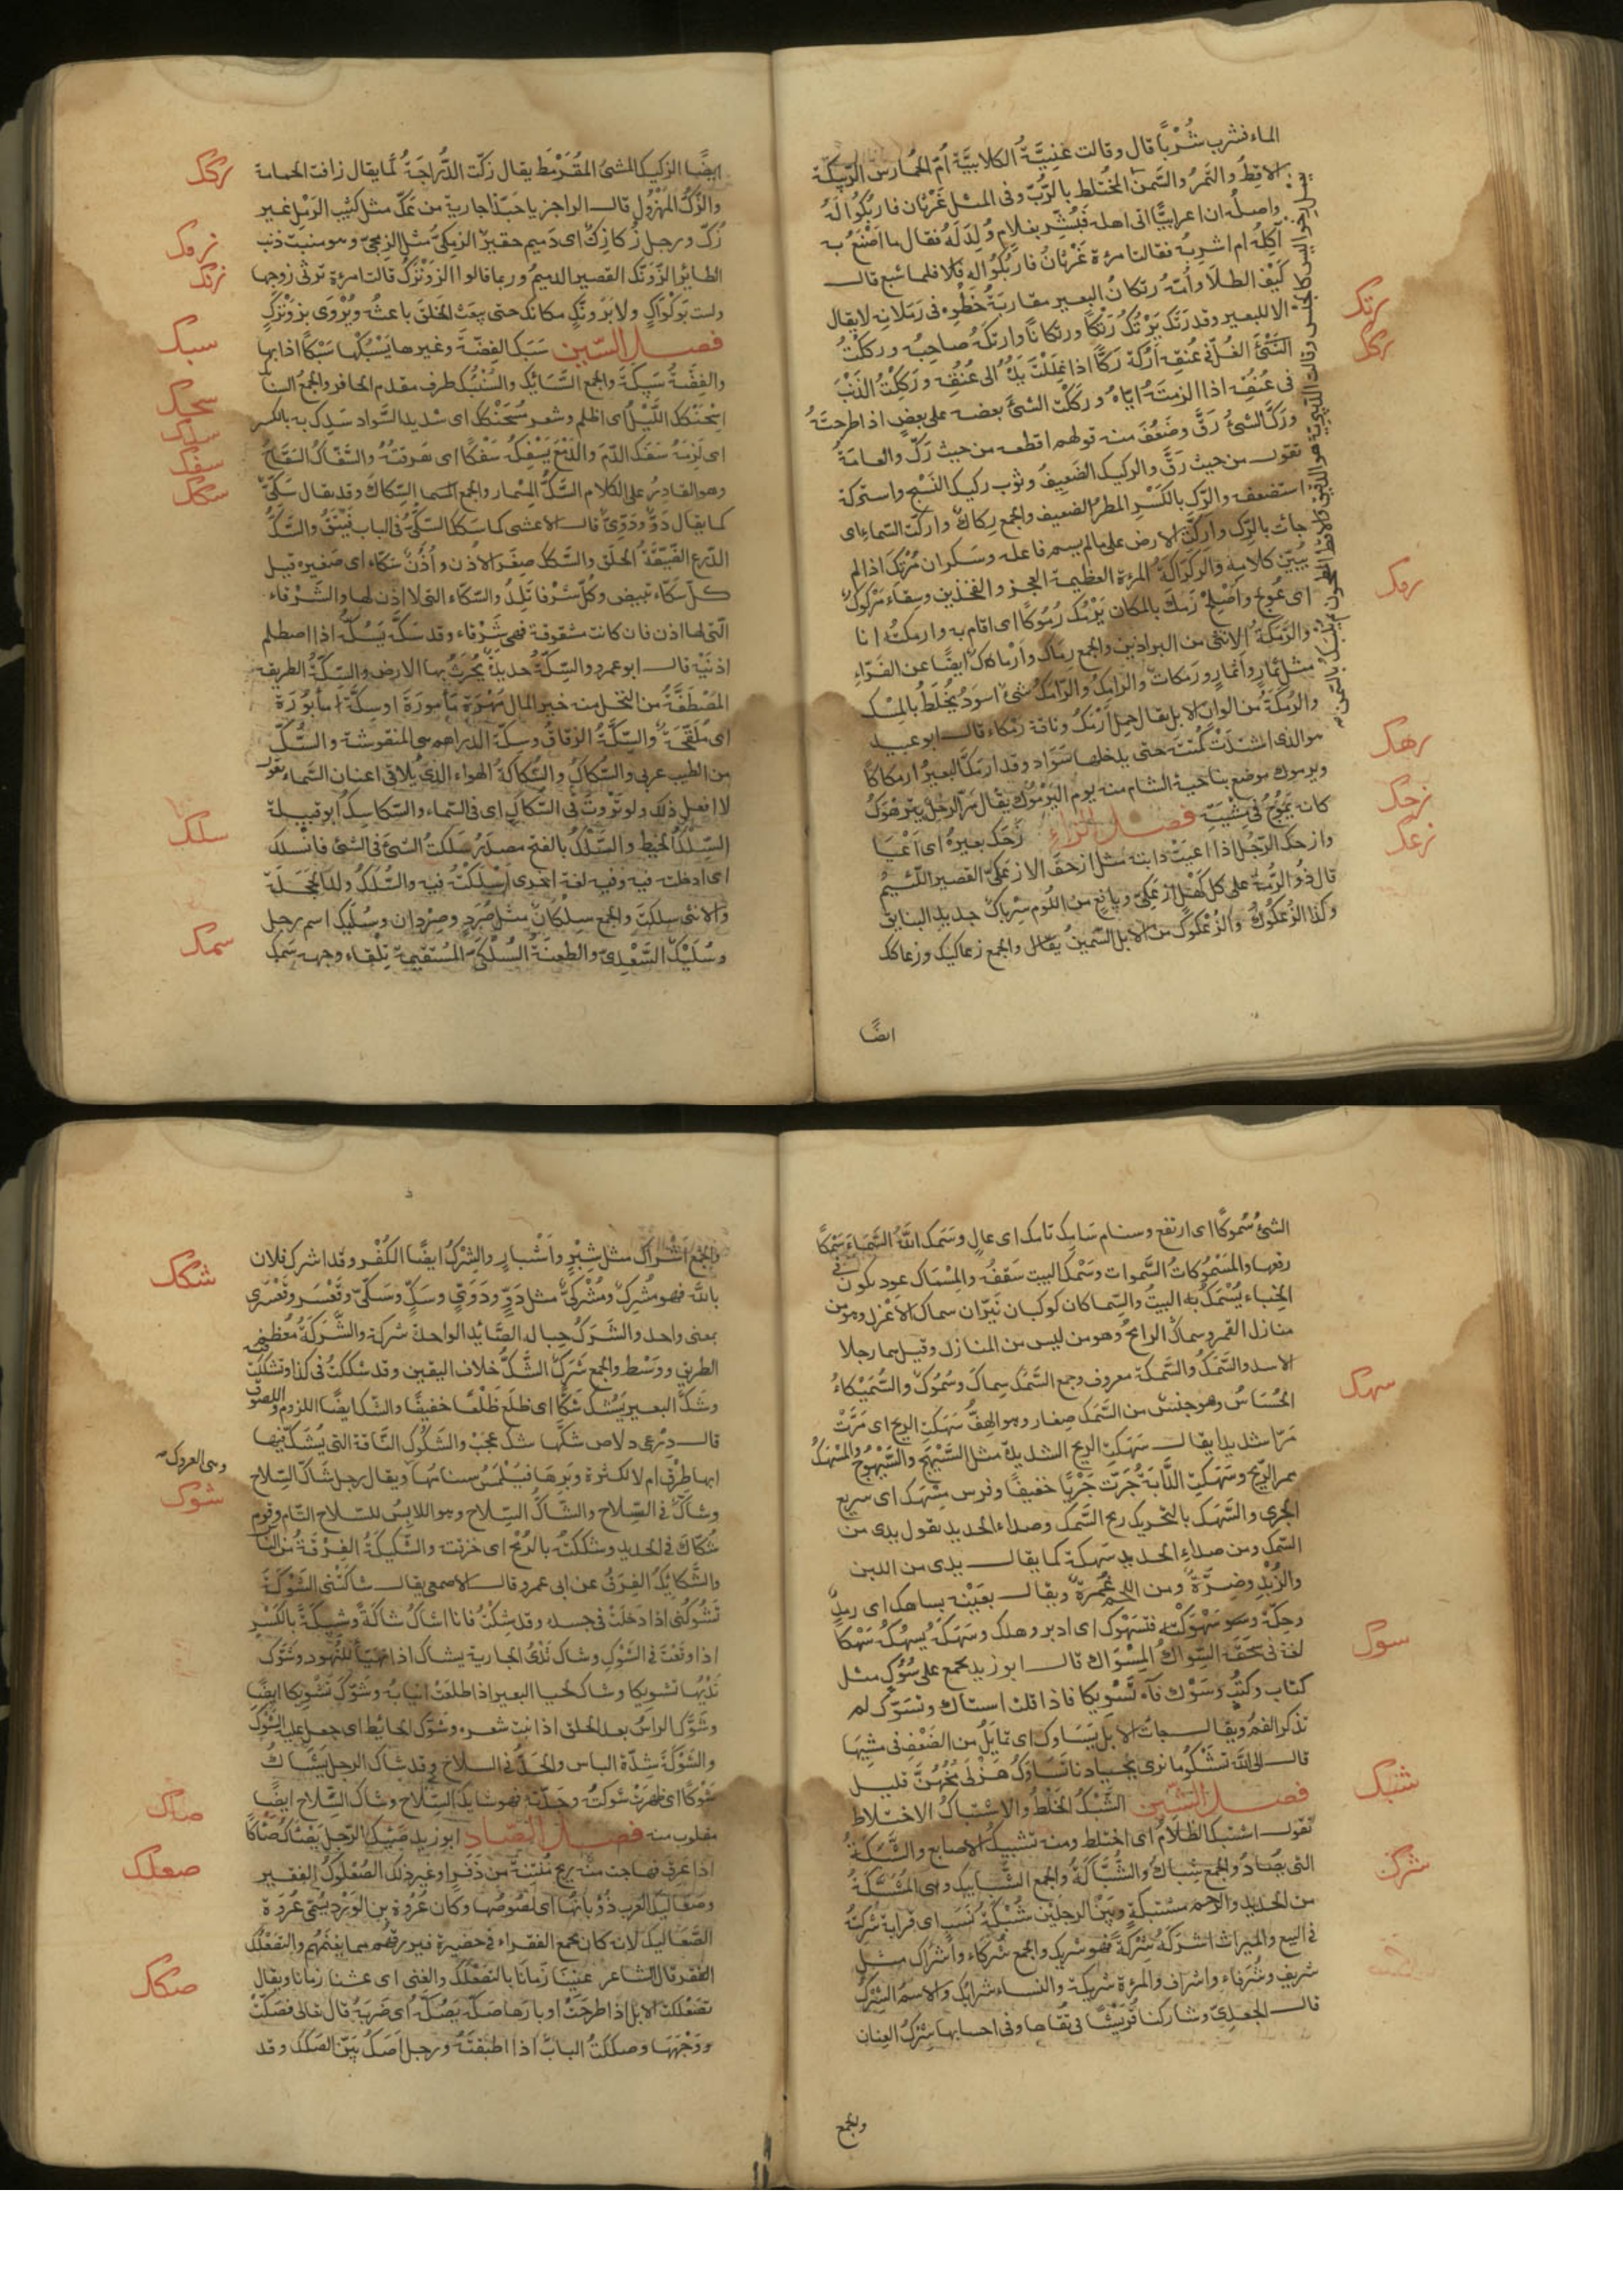 الماء فشرب شُرْبًا قال وقالت غنيّة الكلابيّة أمّ الحُمارس الرّبيكة
الاقِطُ والتَّمرُ والسَّمن المختلط بالرُّبّ وفى المثل غَرْثان فاربكُوا لَهُ
واصله ان اعرابيًّا اتى اهله فبُشِّر بغلام وُلِدَ لَهُ فقال ما اصْنَعُ به
آكلُهُ ام اشربُهُ فقالت امرءة غَرْثانُ فاربُكُوا له فلما شبع قال
كيف الطلا وأمّه رتكانُ البعير مقاربةُ خَطْوِه فى رَمَلانِه لا يقال
الا للبعير وقد رَتَك يَرْتُكُ رَتْكًا ورتكانًا وارتكهُ صاحبه ورككتُ
الشَّئَ الغُلَّ فى عُنقه ارُكّه ركًّا اذا غللتَ يدَهُ الى عُنُقِه ورككتُ الذَّنْبَ
فى عُنُقِه اذا الزمتَهُ اياه ورككت الشئَ بعضه على بعضٍ اذا طرحتَهُ
وركَّ الشئُ رَقَّ وضَعُفَ منه قولهم اقطعه من حيث ركّ والعامّة
تقول من حيث رَقَّ والركيك الضَعِيفُ وثوب ركيك النَّسْج واستركّه
استضعفه والرِّك بالكَسْرِ المطرُ الضعيف والجمع رِكاك واركّت السّماءُ اى
جاءت بالرِّك واركّت الارض على ما لم يسم فاعله وسكران مُرْتَكّ اذا لم
يُبيِّن كلامهُ والركراكةُ المرءة العظيمة العجز والفخذين وسِقاء مَرْكُوك
اى عُوِجَ وأُصْلِحَ رَمَك بالمكان يَرْمُك رُمُوكًا اى اقام به وارمكتُهُ انا
والرَّمَكَةُ الانثى من البراذين والجمع رِماك وأَرْماك ايضًا عن الفَرّاء
مثل ثِمارٍ وأثمار ورمكات والرامِكُ والرَامَكُ شئ اسوَد يُخْلَطُ بالمِسْك
والرُمكَةُ من الوان الابل يقال جمل أَرْمَكُ وناقة رَمْكاء قال ابو عبيد
هو الذى اشتدّتْ كُمْتتُه حتى يدخلها سَوَاد وقد ارمَكَّ البعيرُ ارمكاكًا
ويرموك موضع بناحية الشام منه يوم اليَرْمُوك يقال مرّ الرجل يترَهْوَكُ
كانه يَمُوجُ فى مِشْيَتِه فصل الزاء زَحَك بعيرهُ اى أعْيا
وازحك الرّجُل اذا اعيَتْ دابته مثل ازحَفَ الازعَكىّ القصير اللّئيمُ
قال ذُو الرُّمّة على كل كَهْلٍ ازعَكىٍّ ويافع من اللُّوم سِرْبالٌ جديد البنايق
وكذا الزُّعْكُوكُ والزُعْكوكُ من الابل السَّمينُ يقال والجمع زعاكيك وزعاكك
ايضًا
رتك
ركك
رمك
رهك
زحك
زعك
ايضًا الزكيك المشىُ المُقَرْمَط يقال زكّت الدُّراجَةُ كما يقال زافت الحمامة
والزَّكُّ المهْزُول قال الراجز يا حَبّذا جارية من عَكّ مثل كثيب الرَمْل غير
زكّ ورجل زُكازِك اى دميم حقير الزِمِكىّ مثل الزِمجّى وهو منبت ذنب
الطائر الزَّوَنَّك القصير الدميمُ وربما قالوا الزَوَنْزَكُ قالت امرءة ترثى زوجها
ولست بَوكْواكٍ ولا بزَوَنَّكٍ مكانك حتى يبعَث الخلقَ باعثُه ويُرْوَى بزَوَنْزَكٍ
فصل السّين سَبَك الفِضّةَ وغيرها يَسْبُكُها سَبْكًا اذابها
والفِضّةُ سَبيكَةٌ والجمع السَّبائِك والسُّنْبُك طرف مقدم الحافر والجمع السنابك
اسْحَنْكَك اللَّيْلُ اى اظلم وشعر مُسْحَنْكِك اى شديد السَّواد سَدِك به بالكسر
اى لَزِمَهُ سَفَك الدّمَ والدَّمْعَ يَسْفِكُه سَفْكًا اى هَرقَهُ والسَّفّاكُ السَفّاحُ
وهو القادِرُ على الكلام السَّكُّ المِسْمار والجمع السّكاكُ وقد يقال سَكّىّ
كما يقال دَوٌّ ودَوّىٌّ قال الاعشى كما سَكّ السَّكّىُّ فى الباب فَيْتَقُ والسَّكُّ
الدّرع الضَيّقَةُ الحَلَق والسَّكَك صِغَر الاذن وأُذُنٌ سَكّاء اى صَغيرة قيل
كلّ سَكّاء تبيض وكُلّ شَرْفاء تَلِدُ والسكّاء التى لا اذن لها والشَّرْفاء
الّتى لها اذن فان كانت مشقوقة فهى شَرْقاء وقد سَكّهُ يَسُكّهُ اذا اصطلم
اذنَيْهِ قال ابو عمرو والسِّكّةُ حديدة يُحْرَثُ بها الارض والسِّكّةُ الطريقة
المُصْطَفّةُ من النخل منه خير المال مُهْرة مأمورَة او سِكّة مأبُوْرَة
اى مُلقّحَة والسِّكّةُ الزقاق وسِكّة الدراهم هى المنقوشة والسُّكُّ
من الطيب عربى والسُّكاكُ والسُّكاكةُ الهواء الّذى يُلاقى اعنان السَّماء تقول
لا افعل ذلك ولو نَزَوتُ فى السُّكاك اى فى السّماء والسّكاسِكُ ابو قبيلة
السِّلْكُ الخيط والسَّلْكُ بالفتح مصدَرُ سَلَكتُ الشئَ فى الشئ فانْسَلك
اى ادخلته فيه وفيه لغة اخرى اسْلَكْتُه فيه والسُّلَكُ ولد الحَجَلَة
والانثى سلكة والجمع سِلْكانٌ مثل صُرَدٍ وصِرْدان وسُلَيْك اسم رجل
وسُلَيْك السَّعْدِىّ والطعنَةُ السُّلْكَىّ المُسْتقيمةُ تِلْقاء وجهه سَمَك
زكك
زمك
زنك
سبك
سحك
سدك
سفك
سكك
سلك
سمك
الشئُ سُموكًا اى ارتفع وسنام سَامِك تامك اى عالٍ وسَمَك اللهُ السَّمَاءَ سَمْكًا
رفعها والمَسْمُوكاتُ السَّموات وسَمْكُ البيت سَقفُه والمِسْمَاك عود يكون فى
الخِباء يُسْمَكُ به البيتُ والسِّماكان كوكبان نَيِّران سماك الاعْزل وهو من
منازل القمر وسماكُ الرامحُ وهو من ليس من المنازل وقيل هما رجلا
الاسد والسَّمَكُ والسَّمكة معروف وجمع السَّمك سِماكٌ وسُمُوكٌ والسُّمَيْكاءُ
الحُسَاسُ وهو جنسٌ من السَّمَك صِغار وهو الهِفُّ سَهَكت الريح اى مَرَّتْ
مَرًّا شديدا يقال سَهَكتِ الريح الشديدة مثل السَّيْهَج والسَّيْهُوج والمَسْهَكُ
ممر الرّيح وسَهَكتِ الدَّابَةُ جَرَتْ جَرْيًا خفيفًا وفرس مِسْهَك اى سريع
الجرى والسَّهَك بالتحريك ريح السَّمك وصداء الحديد تقول يدى من
السّمك ومن صداءِ الحديد سَهِكة كما يقال يدى من اللبن
والزُبْدِ وضِرَةٌ ومن اللحم غَمِرةٌ ويقال بعَيْنِه ساهك اى رمدٌ
وحِكّة وسَهْوَكْته فتسَهْوَك اى ادبر وهلك وسَهَكَه يَسهكه سَهْكًا
لغة فى سَحَقَهُ السِّواكُ المِسْوَاك قال ابو زيد يجمع على سُوُكٍ مثل
كتاب وكتُبٍ وسَوَّك فاه تَسْوِيكا فاذا قلت استاك وتسَوّك لم
تذكر الفم ويقال جاءت الابل تَسَاوَك اى تمايَلُ من الضَعْفِ فى مِشيِها
قال الى الله تَشْكُو ما نرى بجيادنا تَسَاوَكُ هَزْلَى مُخُّهُنّ قليل
فصل الشين الشَبْكُ الخَلْطُ والاشتباكُ الاختلاط
تقول اشتبك الظَلامُ اى اختلط ومنه تشبيكُ الاصابع والشَّبَكَةُ
التى يصَادُ والجمع شِباكٌ والشُبّاكَةُ والجمع الشَّبابيك وهى المُشَبّكَةُ
من الحديد والرّحم مشتبكة وبَيْنَ الرجلين شُبْكَةُ نَسَب اى قرابة شَرِكتُه
فى البيع والميراث اشرَكُه شِرْكَةً فهو شريك والجمع شركاء وأشراك مثل
شريف وشُرَفاء واشراف والمرءة شَريكة والنساء شرايك والاسمُ الشِّرْكُ
قال الجعدِىّ وشاركنا قُرَيْشًا فى تُقاها وفى احسابها شِرْكُ العِنانِ
والجمع
سهك
سوك
شبك
شرك
والجمع أشْراك مثل شِبْرٍ وأَشْبارٍ والشِرْكُ ايضًا الكُفْر وقد اشرك فلان
بالله فهو مُشْرِك ومُشْرِكىّ مثل دَوٍّ ودَوّىٍّ وسَكٍّ وسَكّىّ وقَعْسَرٍ وقَعْسَرِىّ
بمعنى واحد والشَرَكُ حِبالة الصَّايْد الواحدة شَرَكة والشَّرَكَةُ مُعْظم
الطريق ووَسَطه والجمع شَرَكٌ الشَّكُّ خلاف اليقين وقد شككتُ فى كذا وتشككتُ
وشَكَّ البعيرُ يَشُكُّ شَكًّا اى ظَلَعَ ظَلْعًا خفيفًا والشّك ايضًا اللزوم واللصوق
قال دِرْعى دِلاص شَكُّها شَكٌّ عَجَبْ والشَكُوكُ النّاقة التى يُشَكُّ فيها
ابها طِرْقٌ ام لا لكثرة وَبَرِها فيَلْمَسُ سنامُها ويقال رجل شاكّ السِّلاح
وشاكٌّ فى السِّلاح والشّاكُّ السِّلاح وهو اللابِسُ للسِّلاح التّام وقوم
شُكّاك فى الحديد وشككتُه بالرُمْح اى خزقته والشَّكيكَةُ الفِرْقَةُ من الناس
والشَّكايكُ الفِرَقُ عن ابى عمرو قال الاصمعى يقال شاكَتْنى الشَّوْكَةُ
تَشُوكُنى اذا دَخَلَتْ فى جسده وقد شِكْتُ فانا اشاكُ شاكَةً وشِيكَةً بالكَسْرِ
اذا وقَعْتَ فى الشَوْك وشاك ثَدْىُ الجارية يشاك اذا تَهيّأ للنُّهُود وشَوَّك
ثَدْيُها تشويكا وشاك لحيا البعير اذا طلعَتْ انيابُهُ وشَوّك تَشْويكا ايضًا
وشَوَّك الراسُ بعد الحلق اذا نبت شعره وشَوّك الحايط اى جعل عليه الشَّوْك
والشَّوْكَةُ شِدّة الباس والحَدُّ فى السلاح وقد شاك الرجل يَشاكُ
شَوْكًا اى ظهرت شَوكتُه وحِدّتُهُ فهو شايك السِّلاح وشاك السِّلاح ايضًا
مقلوب منه فصل الصّاد ابو زيد صَئِك الرّجل يَصْأكُ صَأكًا
اذا عرِق فهاجت منه ريح مُنتنة من ذَفَر او غير ذلك الصُّعْلُوكُ الفقير
وصَعاليك العرب ذُؤْبانُها اى لصُوصُها وكان عُرْوة بن الوَرْد يُسمّى عُرْوَة
الصَّعاليك لانه كان يجمع الفقراء فى حظيرة فيرزقهم مما يغْنَمُهم والتَّصَعْلُك
الفقر قال الشاعر غَنِينا زَمانًا بالتَّصَعْلُك والغِنى اى عشنا زمانا ويقال
تَصَعْلَكت الابل اذا طرحَتْ اوبارها صَكَّه يَصُكُّه اى ضَرَبهُ قال تعالى فصَكّتْ
وَجْهَهَا وصككتُ البابَ اذا اطبقتَهُ ورجل اَصَكُّ بَيّن الصَّكَك وقد
شكك
وهى العروك
شوك
صاك
صعلك
صكك